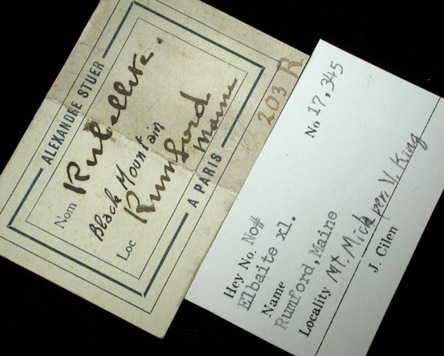 ALEXANDRE STUER
Nom Rubellite.
Black Mountain
Loc Rumford
Maine
A PARIS
203 R
No 17,345
Hey No. No#
Elbaite xl.
Name
Rumford, Maine
Locality Mt. Mick per V. King
J. Cilen